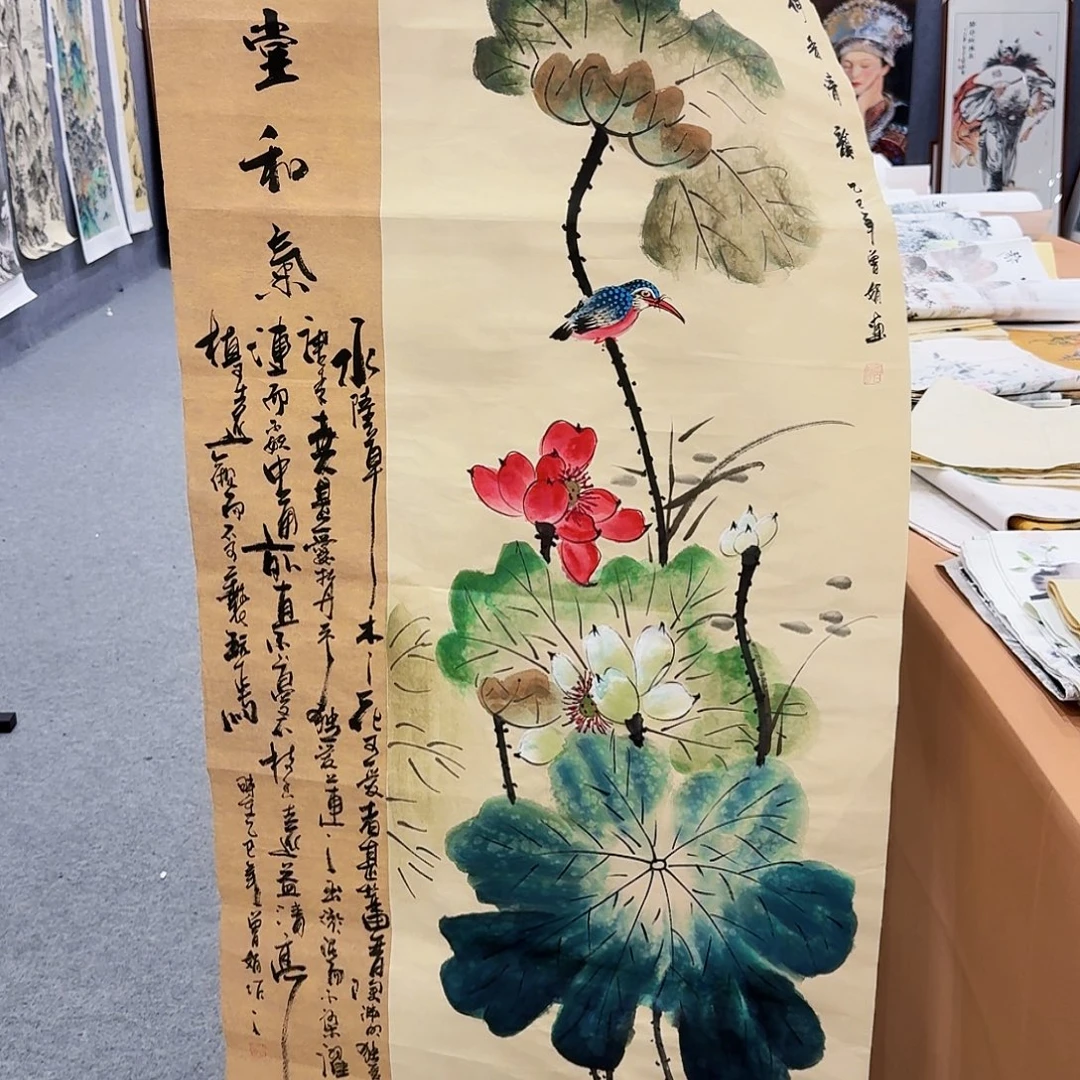 荷香清韻 乙巳年曾娟畫
堂和氣
水陸草木之花可愛者甚蕃晉陶淵明獨愛
甚愛牡丹予獨愛蓮之出淤泥而不染濯
漣而不妖中通外直不蔓不枝香遠益清亭
植可遠觀而不可褻玩焉
時在乙巳年曾娟作之